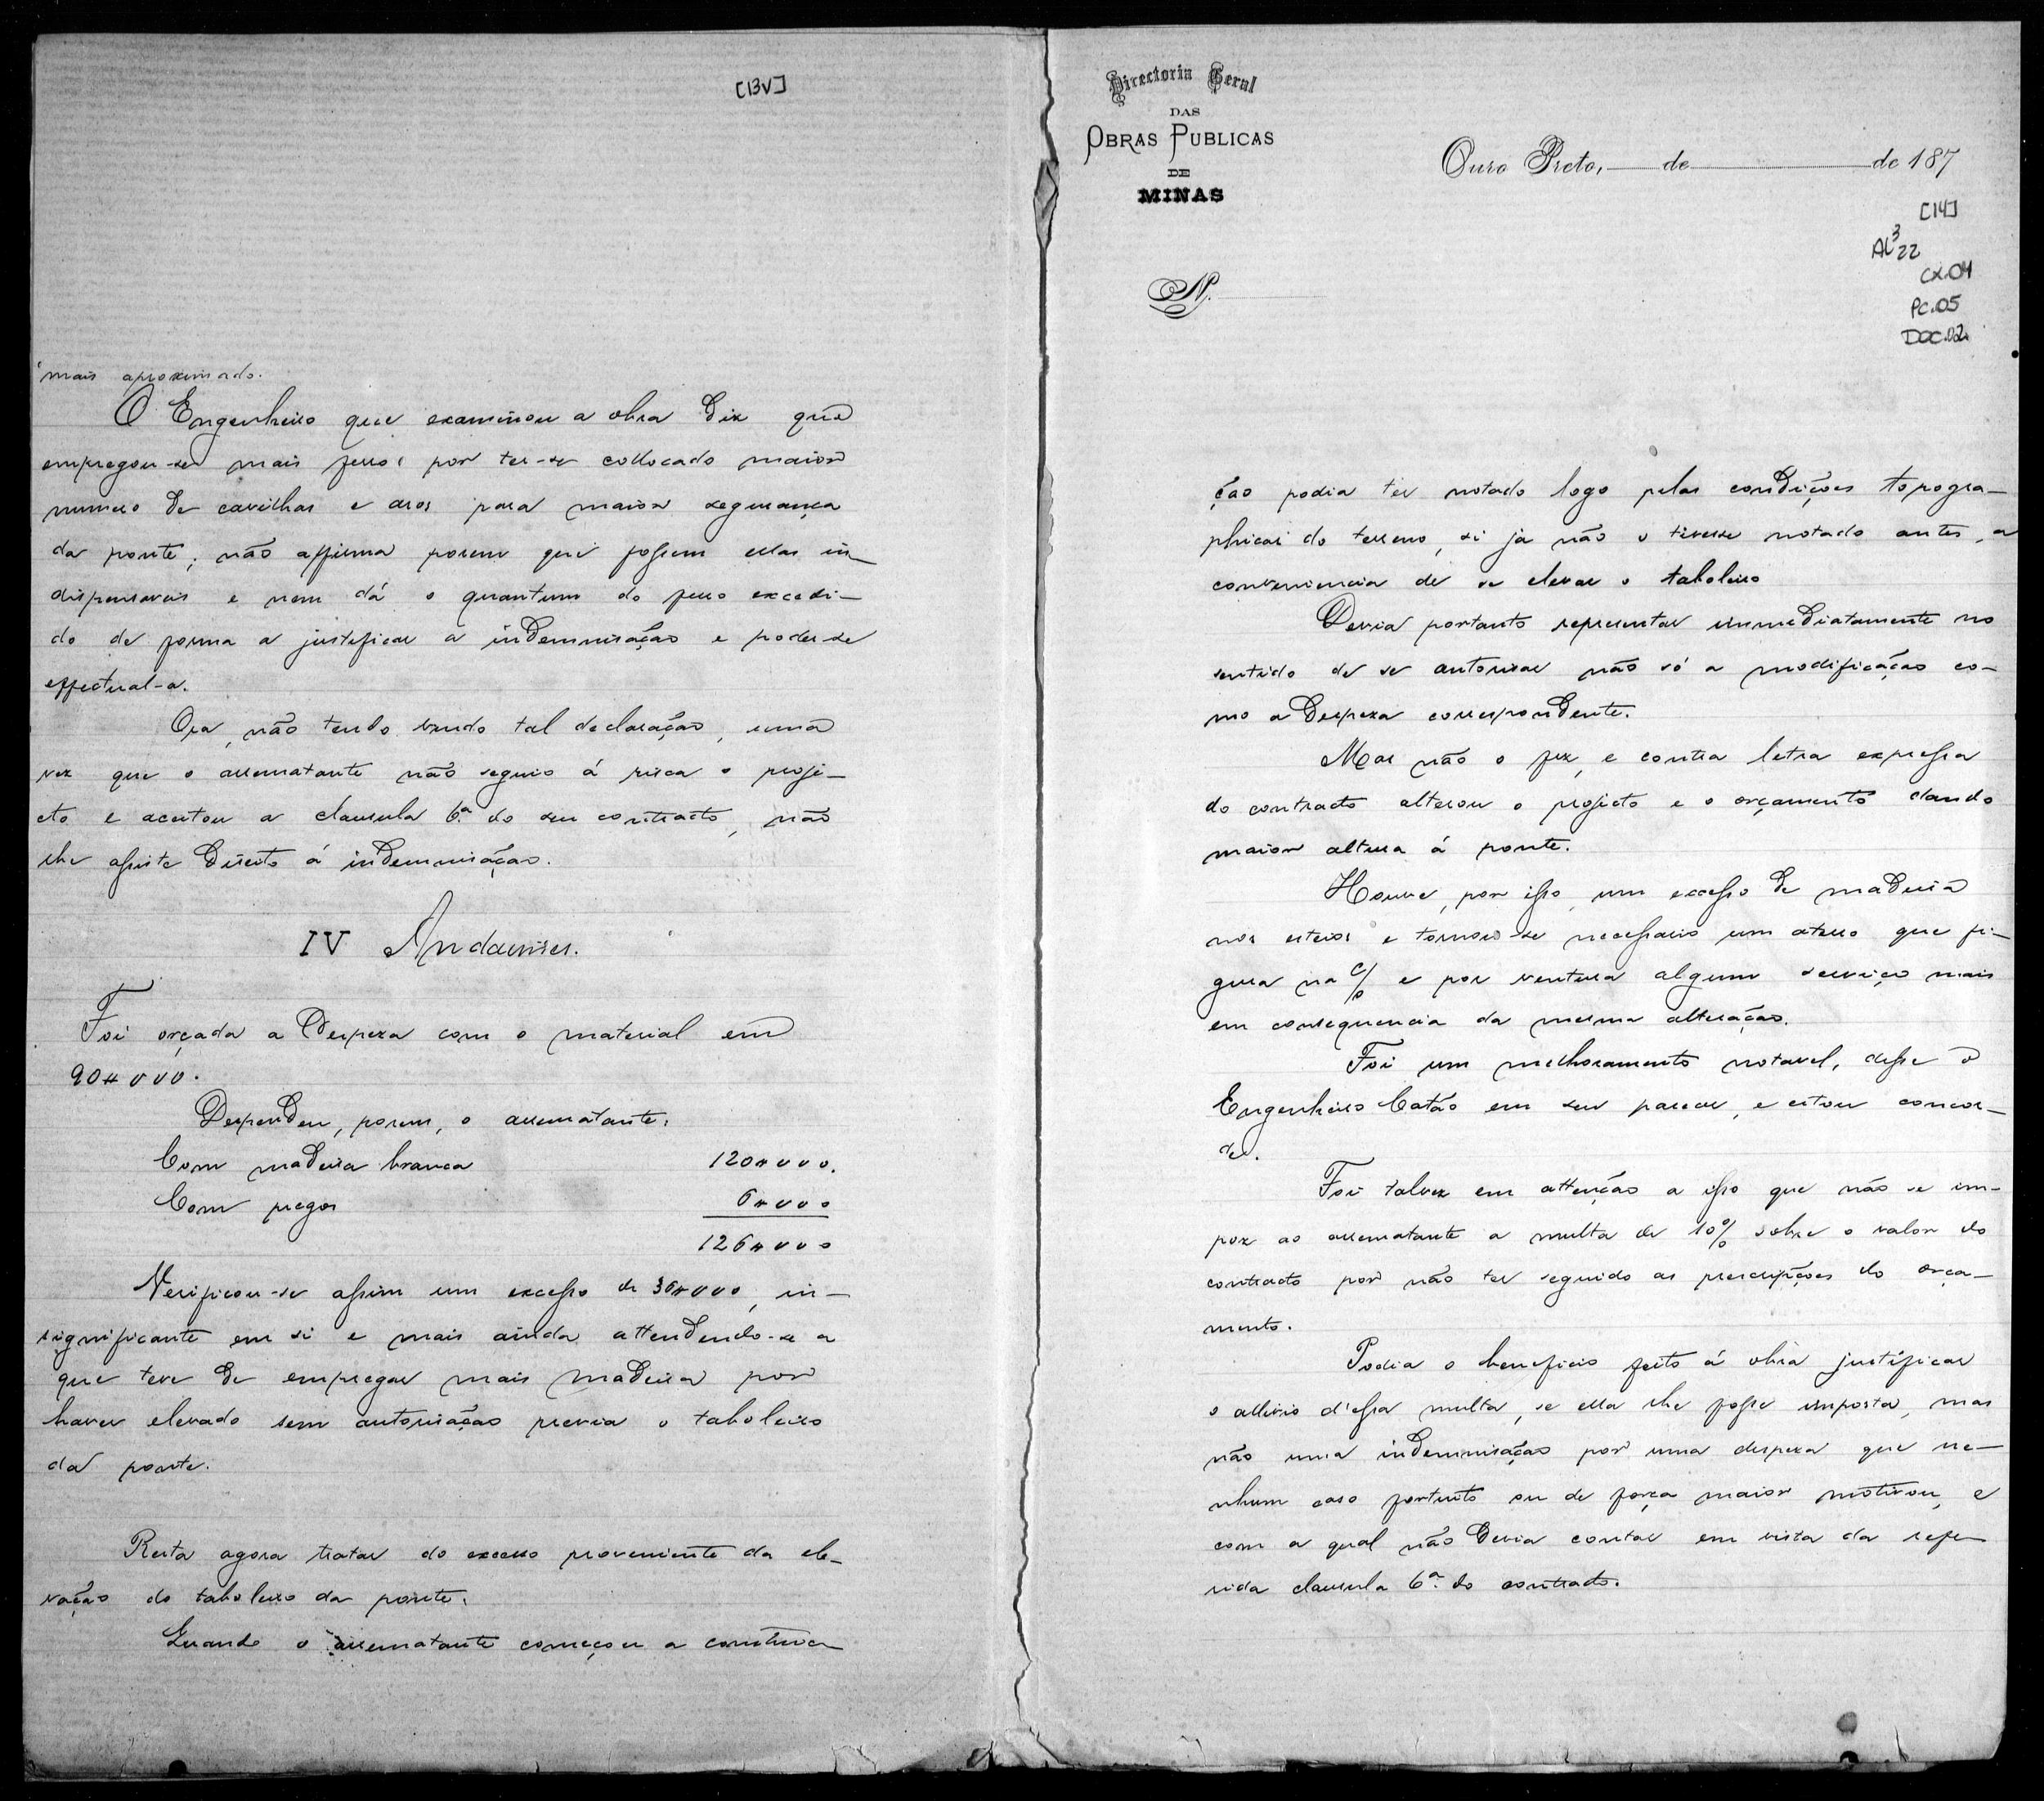 [13V]
mais aproximado.
O Engenheiro que examinou a obra diz que
empregou-se mais ferro: por ter-se collocado maior
numero de cavilhas e aros para maior segurança
da ponte; não affirma porem que fossem ellas in-
dispensaveis e nem dá o quantum do ferro excedi-
do de forma a justificar a indemnisação e poder-se
effectual-a.
Ora, não tendo vindo tal declaração, uma
vez que o arrematante não seguio á risca o proje-
cto e aceitou a clausula 6ª do seu contracto, não
lhe assiste direito á indemnisação.
IV Andaimes.
Foi orçada a despeza com o material em
90#000.
Despendeu, porem, o arrematante:
Com madeira branca 120#000.
Com pregos 6#000
126#000
Verificou-se assim um excesso de 36#000, in-
significante em si e mais ainda attendendo-se a
que teve de empregar mais madeira por
haver elevado sem autorisação previa o taboleiro
da ponte.
Resta agora tratar do excesso proveniente da ele-
vação do taboleiro da ponte.
Quando o arrematante começou a construc-
Directoria Geral
DAS
OBRAS PUBLICAS
DE
MINAS
Ouro Preto, de de 187
[14]
AL³22
CX.04
PC.05
DOC.02
N.
ção podia ter notado logo pelas condições topogra-
phicas do terreno, si ja não o tivesse notado antes, a
conveniencia de se elevar o taboleiro
Devia portanto representar immediatamente no
sentido de se autorisar não só a modificação co-
mo a despeza correspondente.
Mas não o fez, e contra letra expressa
do contracto alterou o projecto e o orçamento dando
maior altura á ponte.
Houve, por isso, um excesso de madeira
nos esteios e tornou-se necessario um aterro que fi-
gura na c/ e por ventura algum serviço mais
em consequencia da mesma alteração.
Foi um melhoramento notavel, disse o
Engenheiro Catão em seu parecer, e estou concor-
de.
Foi talvez em attenção a isso que não se im-
poz ao arrematante a multa de 10% sobre o valor do
contracto por não ter seguido as prescripções do orça-
mento.
Podia o beneficio feito á obra justificar
o allivio d'essa multa, se ella lhe fosse imposta, mas
não uma indemnisação por uma despeza que ne-
nhum caso fortuito ou de força maior motivou, e
com a qual não devia contar em vista da refe-
rida clausula 6ª do contracto.